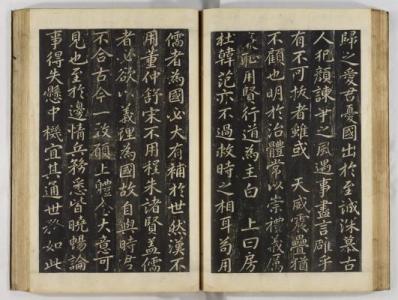 歸之愛君憂國出於至誠深慕古
人犯顏諫爭之風遇事盡言雖乎
有不可拔者雖或 天威震疊猶
不顧也明於治體常以崇禮義厲
恥用賢行道為主白 上曰房
杜韓范亦不過救時之相耳為用
儒者為國必大有補於世然漢不
用董仲舒宋不用程朱諸賢蓋儒
者必欲以義理為國故自與時君
不合古今一致願上體念大意可
見也至於邊情兵務悉皆曉暢論
事得失懸中機宜其通世務如此